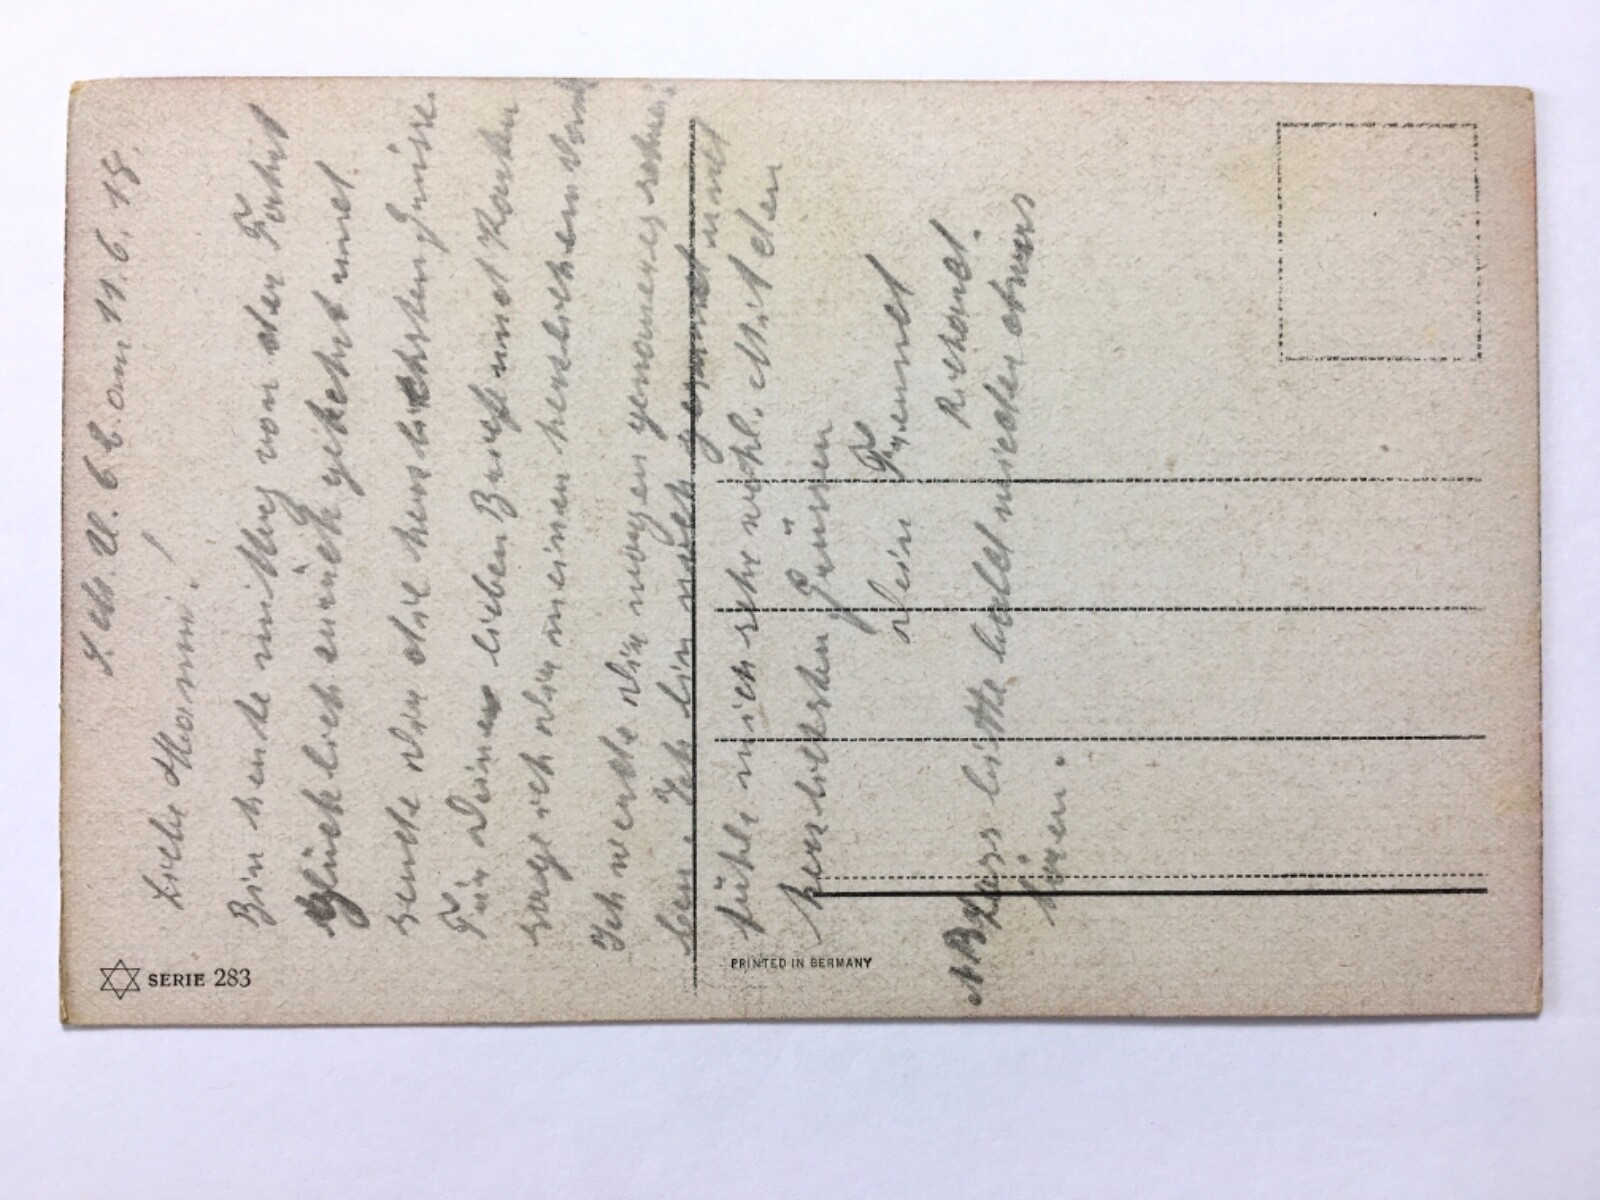 S. M. U. b. b. am 11.6.18.
Liebe Manni!
Bin heute mittag von der Fahrt
Glücklich zurück gekehrt und
sende dir die herzlichsten Grüsse.
Für deinen lieben Brief und Karten
sage ich dir meinen herzlichen Dank
Ich werde dir morgen genaueres schrei
ben. Ich bin noch gesund und
fühle mich sehr wohl. Mit den
herzlichsten Grüssen
dein Freund
Richard.
NB Lass bitte bald wieder etwas
hören.
SERIE 283
PRINTED IN GERMANY